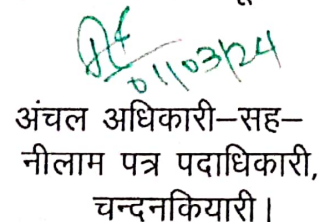 01/03/24
अंचल अधिकारी–सह–
नीलाम पत्र पदाधिकारी,
चन्दनकियारी।